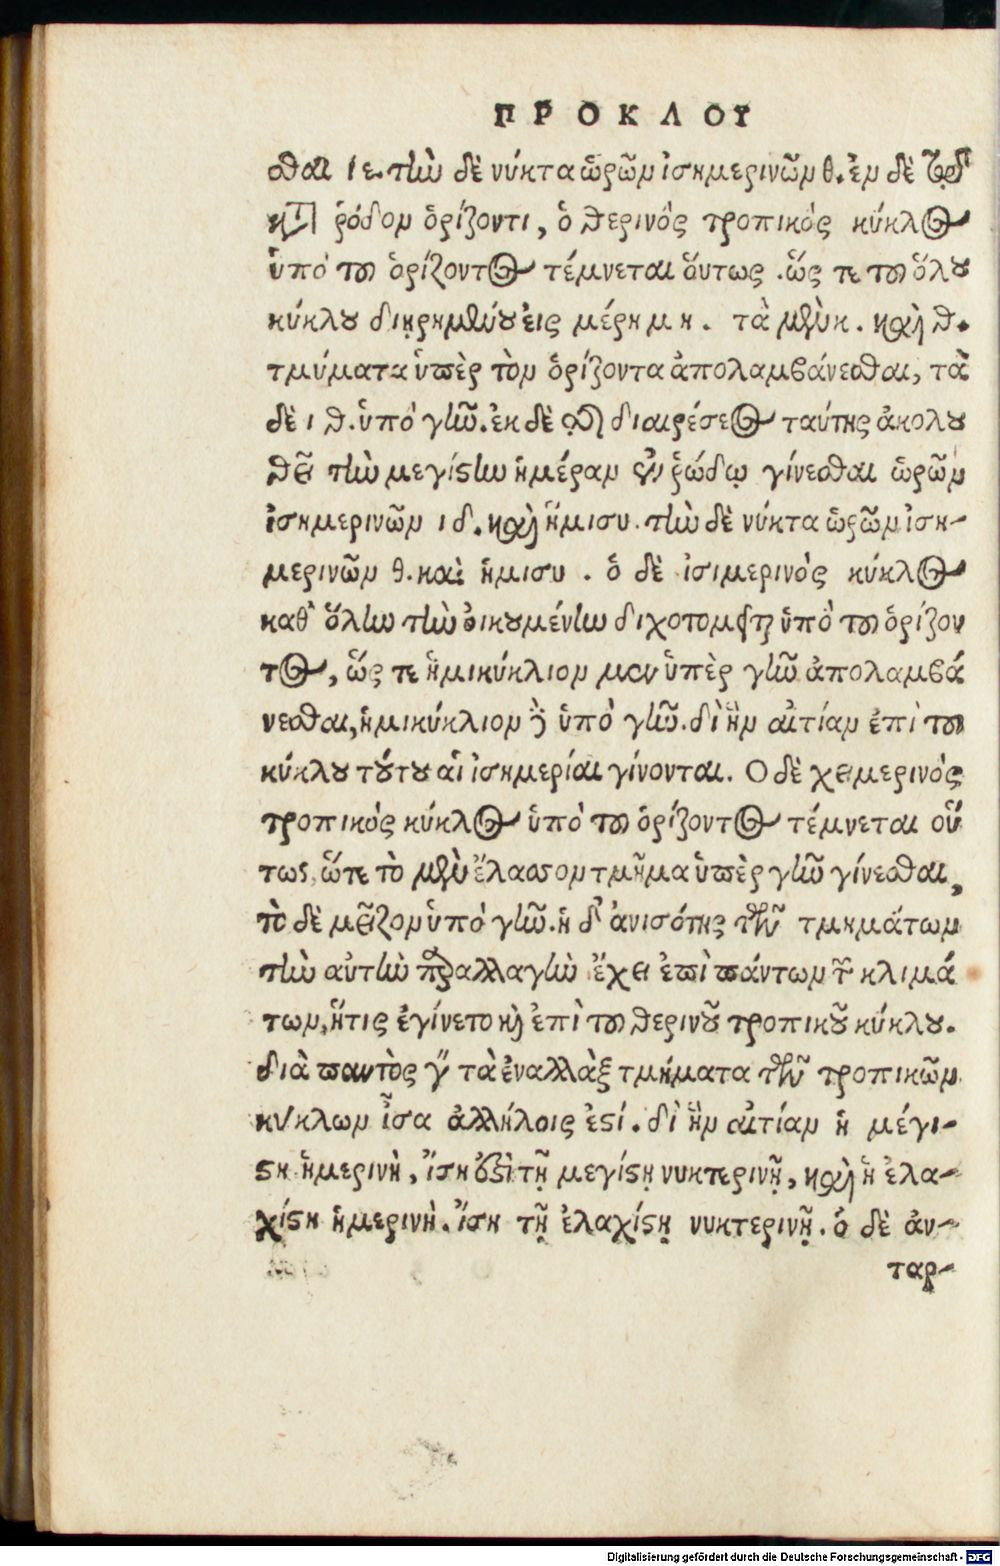 ΠΡΟΚΛΟΥ
σθαι ιε. τὴν δὲ νύκτα ὡρῶν ἰσημερινῶν θ. ἐν δὲ τῷ
κατὰ ῥόδον ὁρίζοντι, ὁ θερινὸς τροπικὸς κύκλος
ὑπὸ τοῦ ὁρίζοντος τέμνεται ὅυτως. ὥς τε τοῦ ὅλου
κύκλου διῃρημένου εἰς μέρη μη. τὰ μὲν κ. καὶ θ.
τμύματα ὑπὲρ τὸν ὁρίζοντα ἀπολαμβάνεσθαι, τὰ
δὲ ιθ. ὑπὸ γῆν. ἐκ δὲ τῆς διαιρέσεος ταύτης ἀκολου
θεῖ τὴν μεγίστην ἡμέραν ἐν ῥώδῳ γίνεσθαι ὡρῶν
ἰσημερινῶν ιδ. καὶ ἥμισυ. τὴν δὲ νύκτα ὡρῶν ἰση-
μερινῶν θ. καὶ ἥμισυ. ὁ δὲ ἰσιμερινὸς κύκλος
καθ' ὅλην τὴν ὀικουμένην διχοτομεῖται ὑπὸ τοῦ ὁρίζον
τος, ὥς τε ἡμικύκλιον μὲν ὑπὲρ γῆν ἀπολαμβά
νεσθαι, ἡμικύκλιον δὲ ὑπὸ γῆν. δι' ἣν αἰτίαν ἐπὶ τοῦ
κύκλου τούτου αἱ ἰσημερίαι γίνονται. Ο δὲ χειμερινὸς
τροπικὸς κύκλος ὑπὸ τοῦ ὁρίζοντος τέμνεται οὕ
τως, ὥστε τὸ μὲν ἔλασσον τμῆμα ὑπὲρ γῆν γίνεσθαι,
τὸ δὲ μεῖζον ὑπὸ γῆν. ἡ δ' ἀνισότης τῶν τμημάτων
τὴν αὐτὴν παραλλαγὴν ἔχει ἐπὶ πάντων τῶν κλιμά
των, ἥτις ἐγίνετο καὶ ἐπὶ τοῦ θερινοῦ τροπικοῦ κύκλου.
διὰ παντὸς γὰρ τὰ ἐναλλὰξ τμήματα τῶν τροπικῶν
κύκλων ἶσα ἀλλήλοις ἐστί. δι' ἣν αἰτίαν ἡ μέγι-
στη ἡμερινὴ, ἴση ἐστὶ τῇ μεγίστῃ νυκτερινῇ, καὶ ἡ ἐλα-
χίστη ἡμερινὴ. ἴση τῇ ἐλαχίστῃ νυκτερινῇ. ὁ δὲ ἀν-
ταρ-
Digitalisierung gefördert durch die Deutsche Forschungsgemeinschaft - DFG